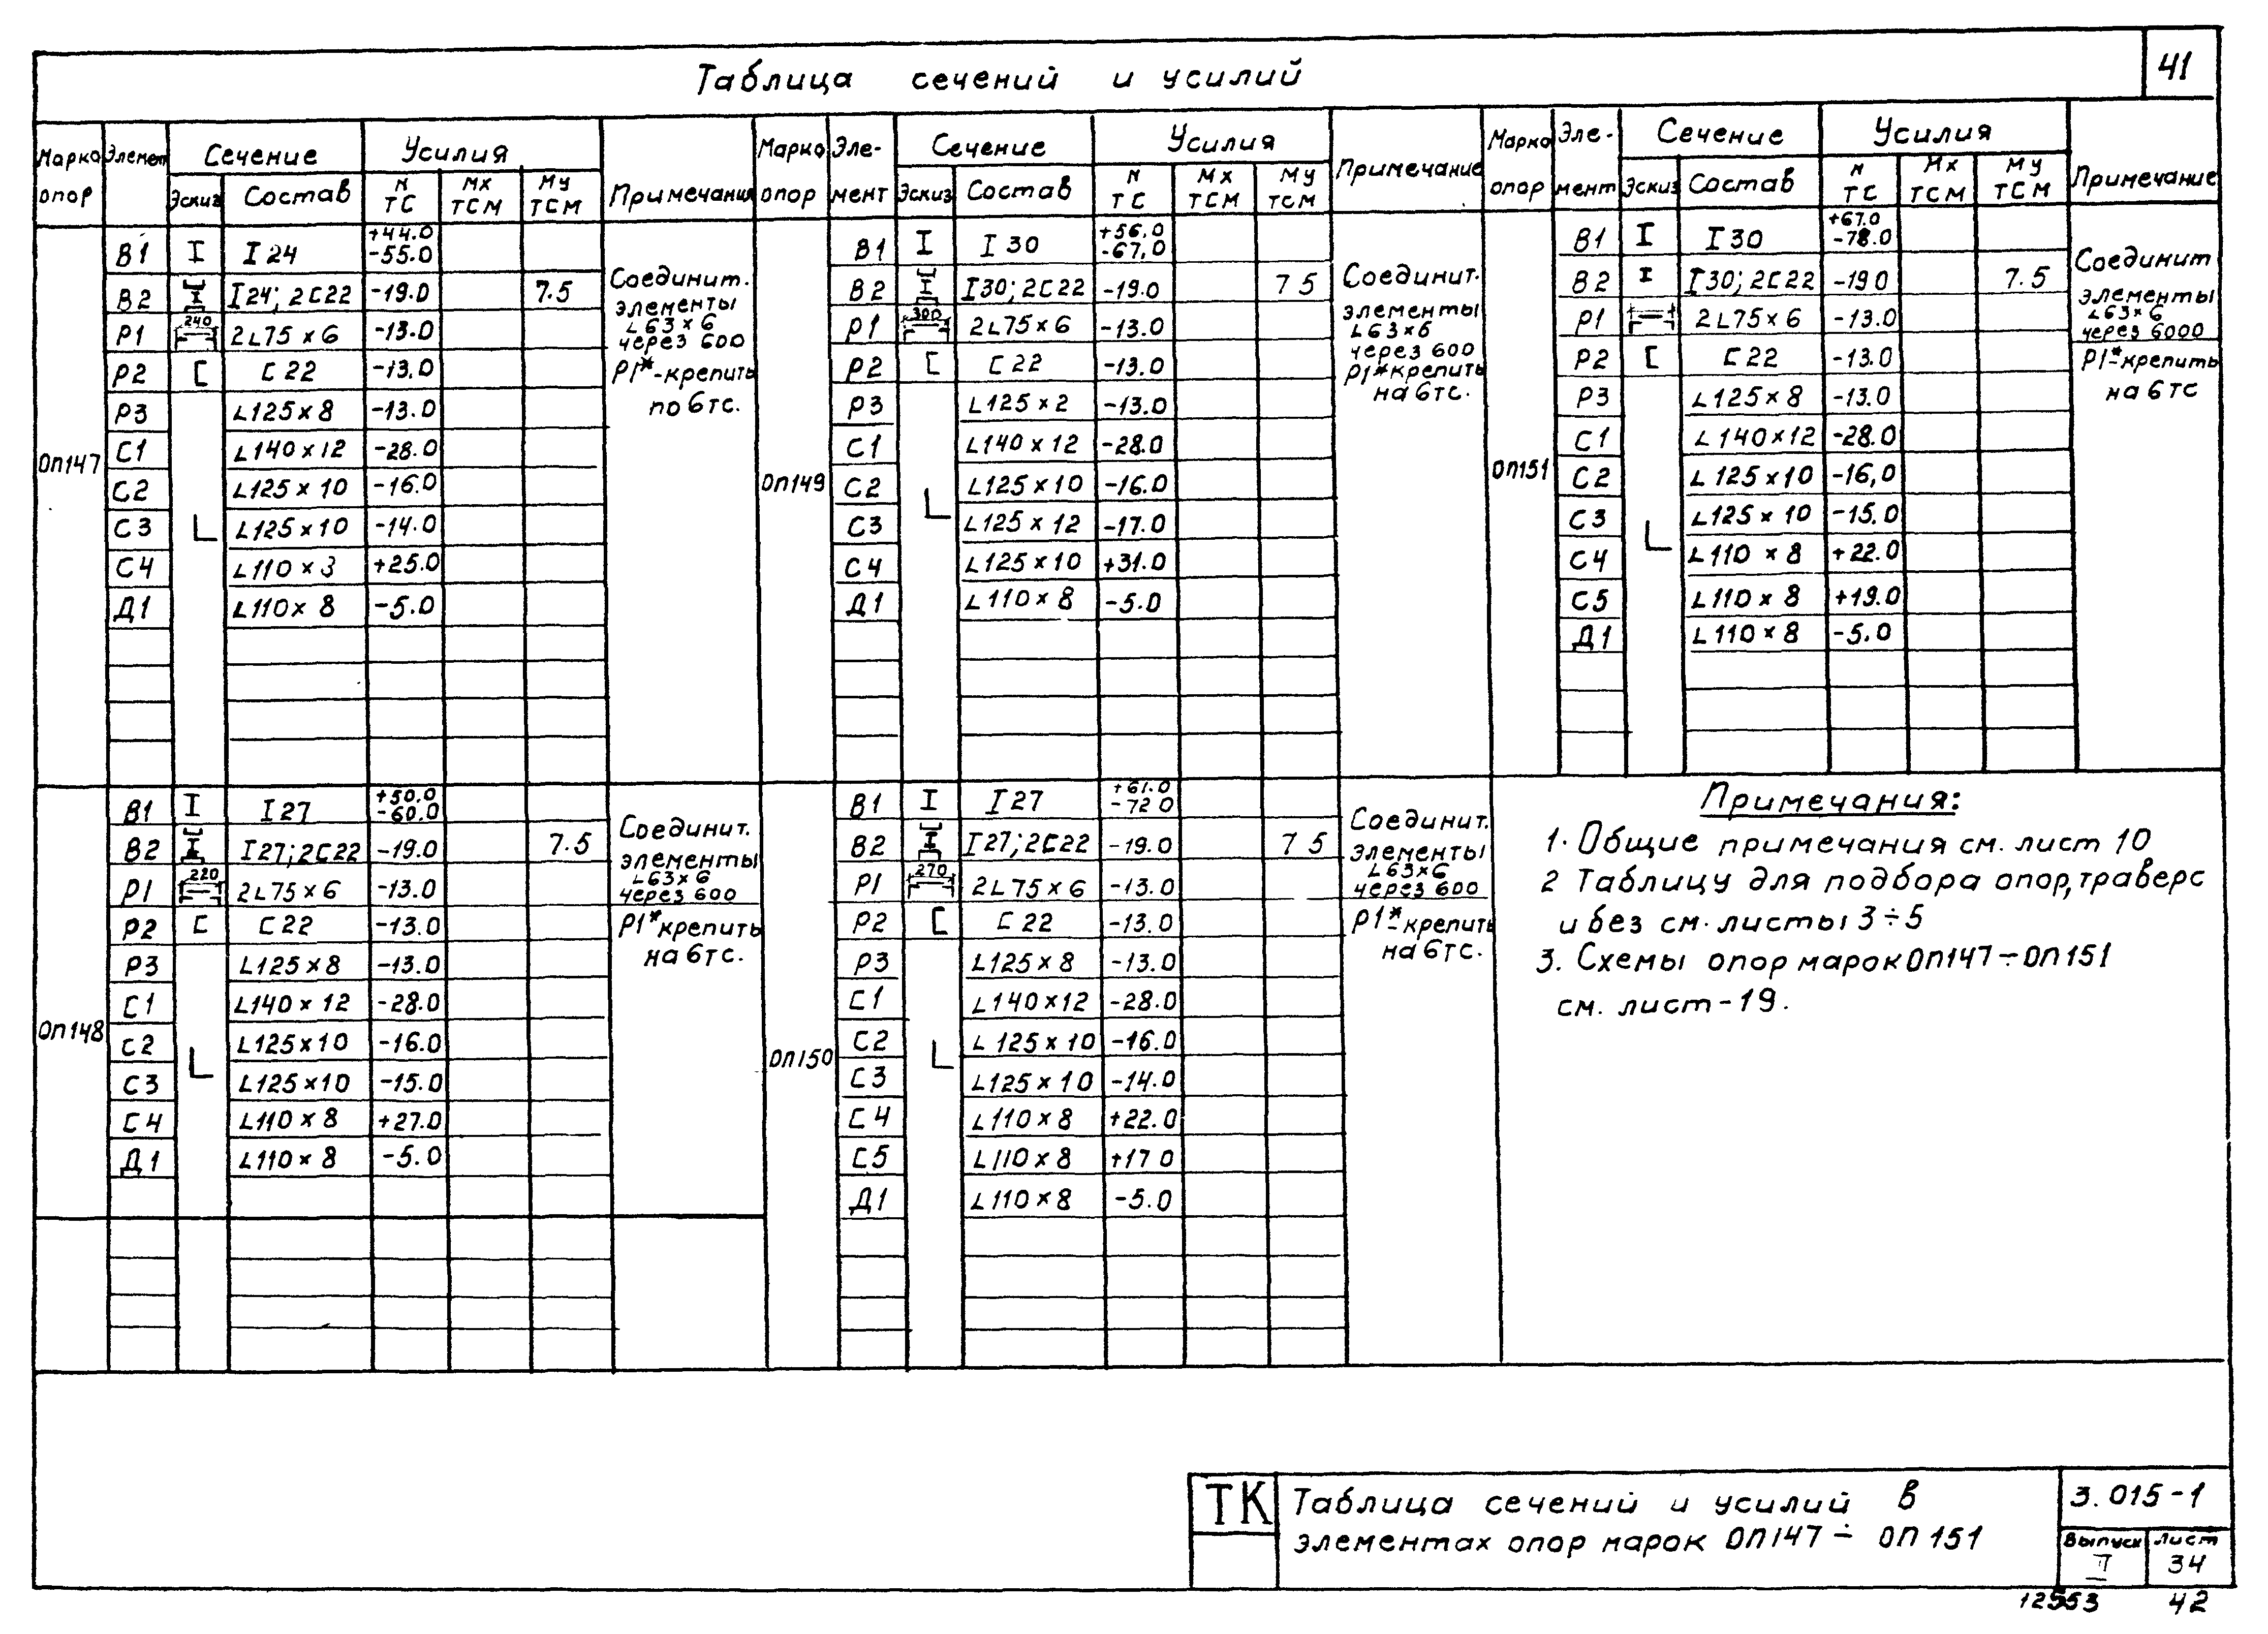 41
Таблица сечений и усилий
Марка опор Элемент Сечение Усилия Примечания
Эскиз Состав N ТС Mx ТСМ My ТСМ
ОП147
В1 I I 24 +44.0 -55.0
В2 I24; 2С22 -19.0 7.5
Р1 240 2L75 х 6 -13.0
Р2 С С 22 -13.0
Р3 L125 х 8 -13.0
С1 L140 х 12 -28.0
С2 L125 х 10 -16.0
С3 L L125 х 10 -14.0
С4 L110 х 3 +25.0
Д1 L110 х 8 -5.0
Соединит.
элементы
L63 х 6
через 600
Р1*-крепить
по 6тс.
ОП148
В1 I I 27 +50.0 -60.0
В2 I27; 2С22 -19.0 7.5
Р1 220 2L75 х 6 -13.0
Р2 С С 22 -13.0
Р3 L125 х 8 -13.0
С1 L140 х 12 -28.0
С2 L125 х 10 -16.0
С3 L L125 х 10 -15.0
С4 L110 х 8 +27.0
Д1 L110 х 8 -5.0
Соединит.
элементы
L63 х 6
через 600
Р1* крепить
на 6тс.
Марка опор Эле-мент Сечение Усилия Примечание
Эскиз Состав N ТС Mx ТСМ My ТСМ
ОП149
В1 I I 30 +56.0 -67,0
В2 I30; 2С22 -19.0 7 5
Р1 300 2L75 х 6 -13.0
Р2 С С 22 -13.0
Р3 L125 х 2 -13.0
С1 L140 х 12 -28.0
С2 L L125 х 10 -16.0
С3 L125 х 12 -17.0
С4 L125 х 10 +31.0
Д1 L110 х 8 -5.0
Соединит.
элементы
L63х6
через 600
Р1* крепить
на 6тс.
ОП150
В1 I I 27 +61.0 -72 0
В2 I27; 2С22 -19.0 7 5
Р1 270 2L 75 х 6 -13.0
Р2 С С 22 -13.0
Р3 L125 х 8 -13.0
С1 L140 х 12 -28.0
С2 L L 125 х 10 -16.0
С3 L125 х 10 -14.0
С4 L110 х 8 +22.0
С5 L110 х 8 +17 0
Д1 L110 х 8 -5.0
Соединит.
элементы
L63х6
через 600
Р1*-крепить
на 6тс.
Марка опор Эле-мент Сечение Усилия Примечание
Эскиз Состав N ТС Mx ТСМ My ТСМ
ОП151
В1 I I 30 +67.0 -78.0
В2 I I30; 2С22 -19 0 7.5
Р1 2L75 х 6 -13.0
Р2 С С 22 -13.0
Р3 L125 х 8 -13.0
С1 L140 х 12 -28.0
С2 L 125 х 10 -16,0
С3 L L125 х 10 -15.0
С4 L110 х 8 +22.0
С5 L110 х 8 +19.0
Д1 L110 х 8 -5.0
Соединит
элементы
L63х6
через 6000
Р1*-крепить
на 6 тс
Примечания:
1. Общие примечания см. лист 10
2 Таблицу для подбора опор, траверс
и без см. листы 3÷5
3. Схемы опор марок ОП147÷ОП151
см. лист-19.
ТК
Таблица сечений и усилий в
элементах опор марок ОП147÷ ОП 151
3.015-1
Выпуск Лист
II 34
12553 42